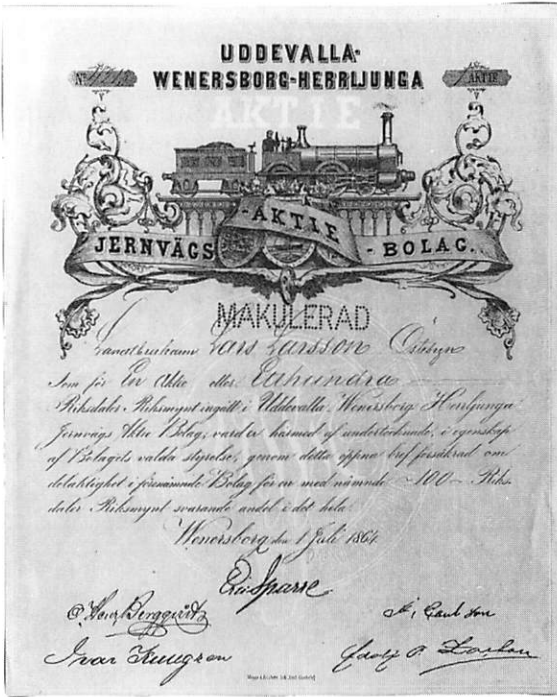 UDDEVALLA-
WENERSBORG-HERRLJUNGA
No AKTIE
AKTIE
-AKTIE-
JERNVÄGS -BOLAG.
MAKULERAD
Landtbrukaren Lars Larsson
Som för En Aktie eller Etthundra
Riksdaler Riksmynt ingått i Uddevalla, Wenersborg Herrljunga
Jernvägs Aktie Bolag, varder härmed af undertecknade, i egenskap
af Bolagets valda styrelse, genom detta öppna bref försäkrad om
delaktighet i förenämnde Bolag för en mot nämnde -100- Riks-
daler Riksmynt svarande andel i det hela.
Wenersborg den 1 Juli 1864
Sparre
Berggqvist
Ivar